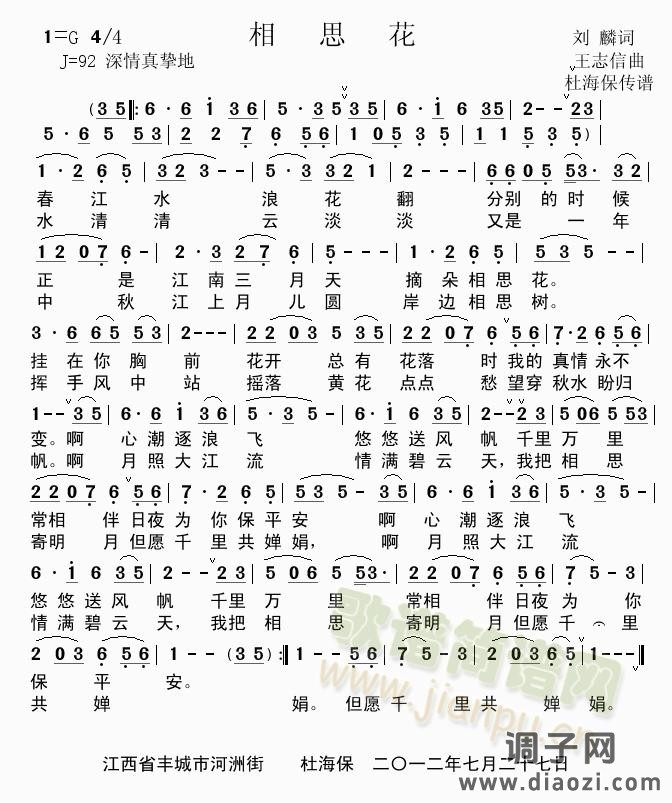 1=G 4/4 相 思 花 刘 麟词
J=92 深情真挚地 王志信曲
杜海保传谱
(3 5 ‖: 6· 6 i 3 6 | 5· 3 5 3 5 | 6· i 6 3 5 | 2 - - 2 3
5· 6 5 5 3 | 2 2 7 6 5 6 | 1 0 5 3 5 | 1 1 5 3 5 )|
1· 2 6 5 | 3 2 3 - - | 5· 3 3 2 1 | 2 - - - | 6 6 0 5 5 3· 3 2 |
春 江 水 浪 花 翻 分别 的 时 候
水 清 清 云 淡 淡 又是 一 年
1 2 0 7 6 - | 2· 3 2 7 6 | 5 - - - | 1· 2 6 5 | 5 3 5 - |
正 是 江 南 三 月 天 摘 朵 相 思 花。
中 秋 江 上 月 儿 圆 岸 边 相 思 树。
3· 6 6 5 5 3 | 2 - - - | 2 2 0 3 5 3 5 | 2 2 0 7 6 5 6 | 7· 2 6 5 6 |
挂 在 你 胸 前 花开 总 有 花落 时 我的 真情 永不
挥 手 风 中 站 摇落 黄花 点点 愁 望穿 秋水 盼归
1 - - 3 5 | 6· 6 i 3 6 | 5· 3 5 - | 6· i 6 3 5 | 2 - - 2 3 | 5 0 6 5 5 3 |
变。啊 心 潮 逐 浪 飞 悠 悠 送 风 帆 千里 万 里
帆。啊 月 照 大 江 流 情 满 碧 云 天,我把 相 思
2 2 0 7 6 5 6 | 7· 2 6 5 | 5 3 5 - 3 5 | 6· 6 i 3 6 | 5· 3 5 - |
常相 伴 日夜 为 你 保 平 安 啊 心 潮 逐 浪 飞
寄明 月 但愿 千 里 共 婵 娟, 啊 月 照 大 江 流
6· i 6 3 5 | 2 - - 2 3 | 5 0 6 5 5 3· | 2 2 0 7 6 5 6 | 7 5 - 3 |
悠 悠 送 风 帆 千里 万 里 常相 伴 日夜 为 你
情 满 碧 云 天, 我把 相 思 寄明 月 但愿 千 里
2 0 3 6 5 6 | 1 - - (3 5) :‖ 1 - - 5 6 | 7 5 - 3 | 2 0 3 6 5 6 | 1 - - - ‖
保 平 安。
共 婵 娟。 但愿 千 里 共 婵 娟。
歌谱简谱网
www.jianpu.cn
江西省丰城市河洲街 杜海保 二〇一二年七月二十七日
调子网
www.diaozi.com